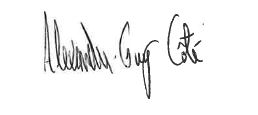 Alexandre-Guy Côté